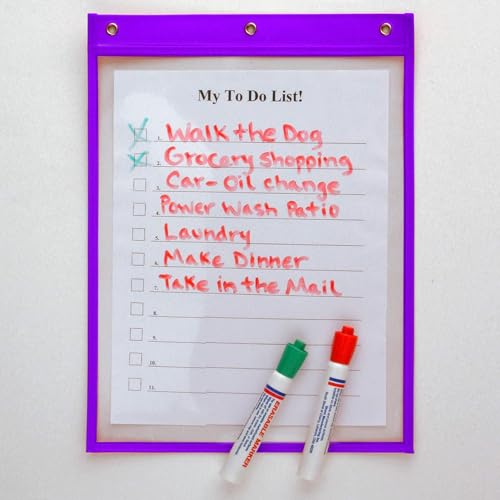 My To Do List!
1. Walk the Dog
2. Grocery Shopping
3. Car-Oil change
4. Power Wash Patio
5. Laundry
6. Make Dinner
7. Take in the Mail
8.
9.
10.
11.
ERASABLE MARKER